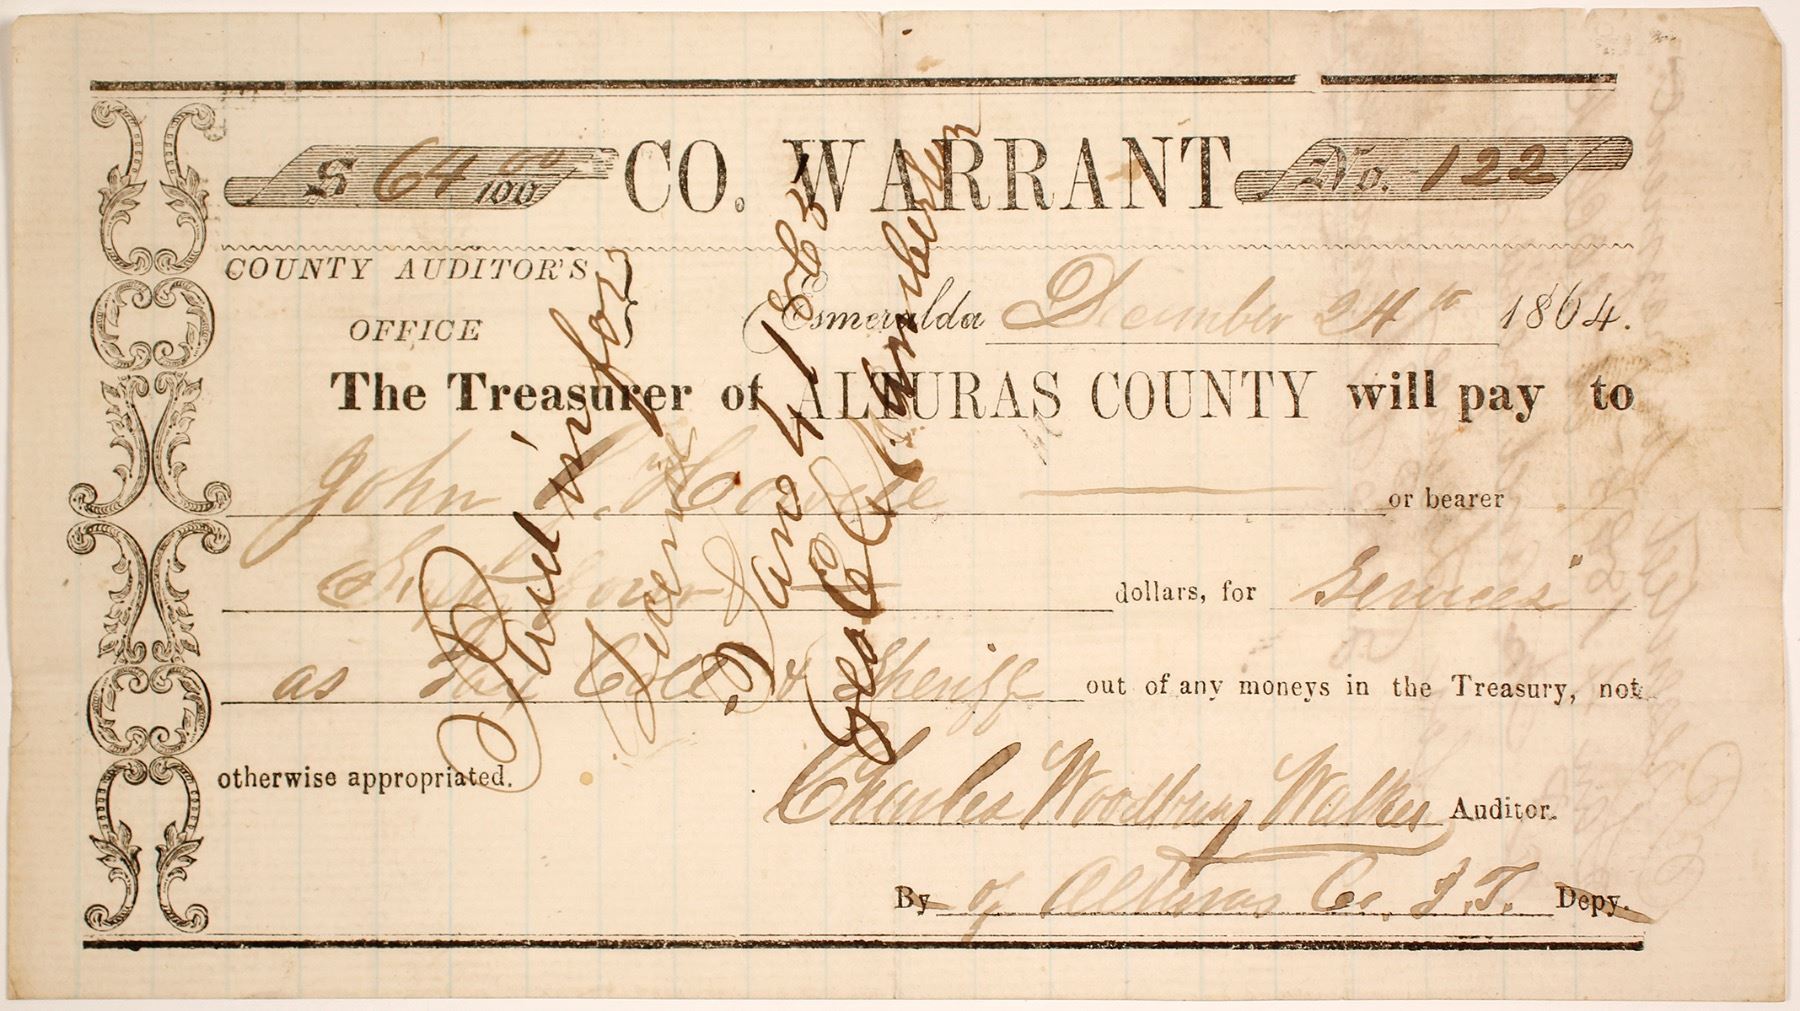 $ 64 00/100 CO. WARRANT No. 122
COUNTY AUDITOR'S
OFFICE
Esmeralda December 24th 1864.
The Treasurer of ALTURAS COUNTY will pay to
John or bearer
Sixty four dollars, for Services
as Tax Coll. & Sheriff out of any moneys in the Treasury, not
otherwise appropriated.
Charles Woodbury Walker Auditor.
By of Alturas Co. I. T. Depy.
Paid in for
Licenses
Jan 4 1865
Geo